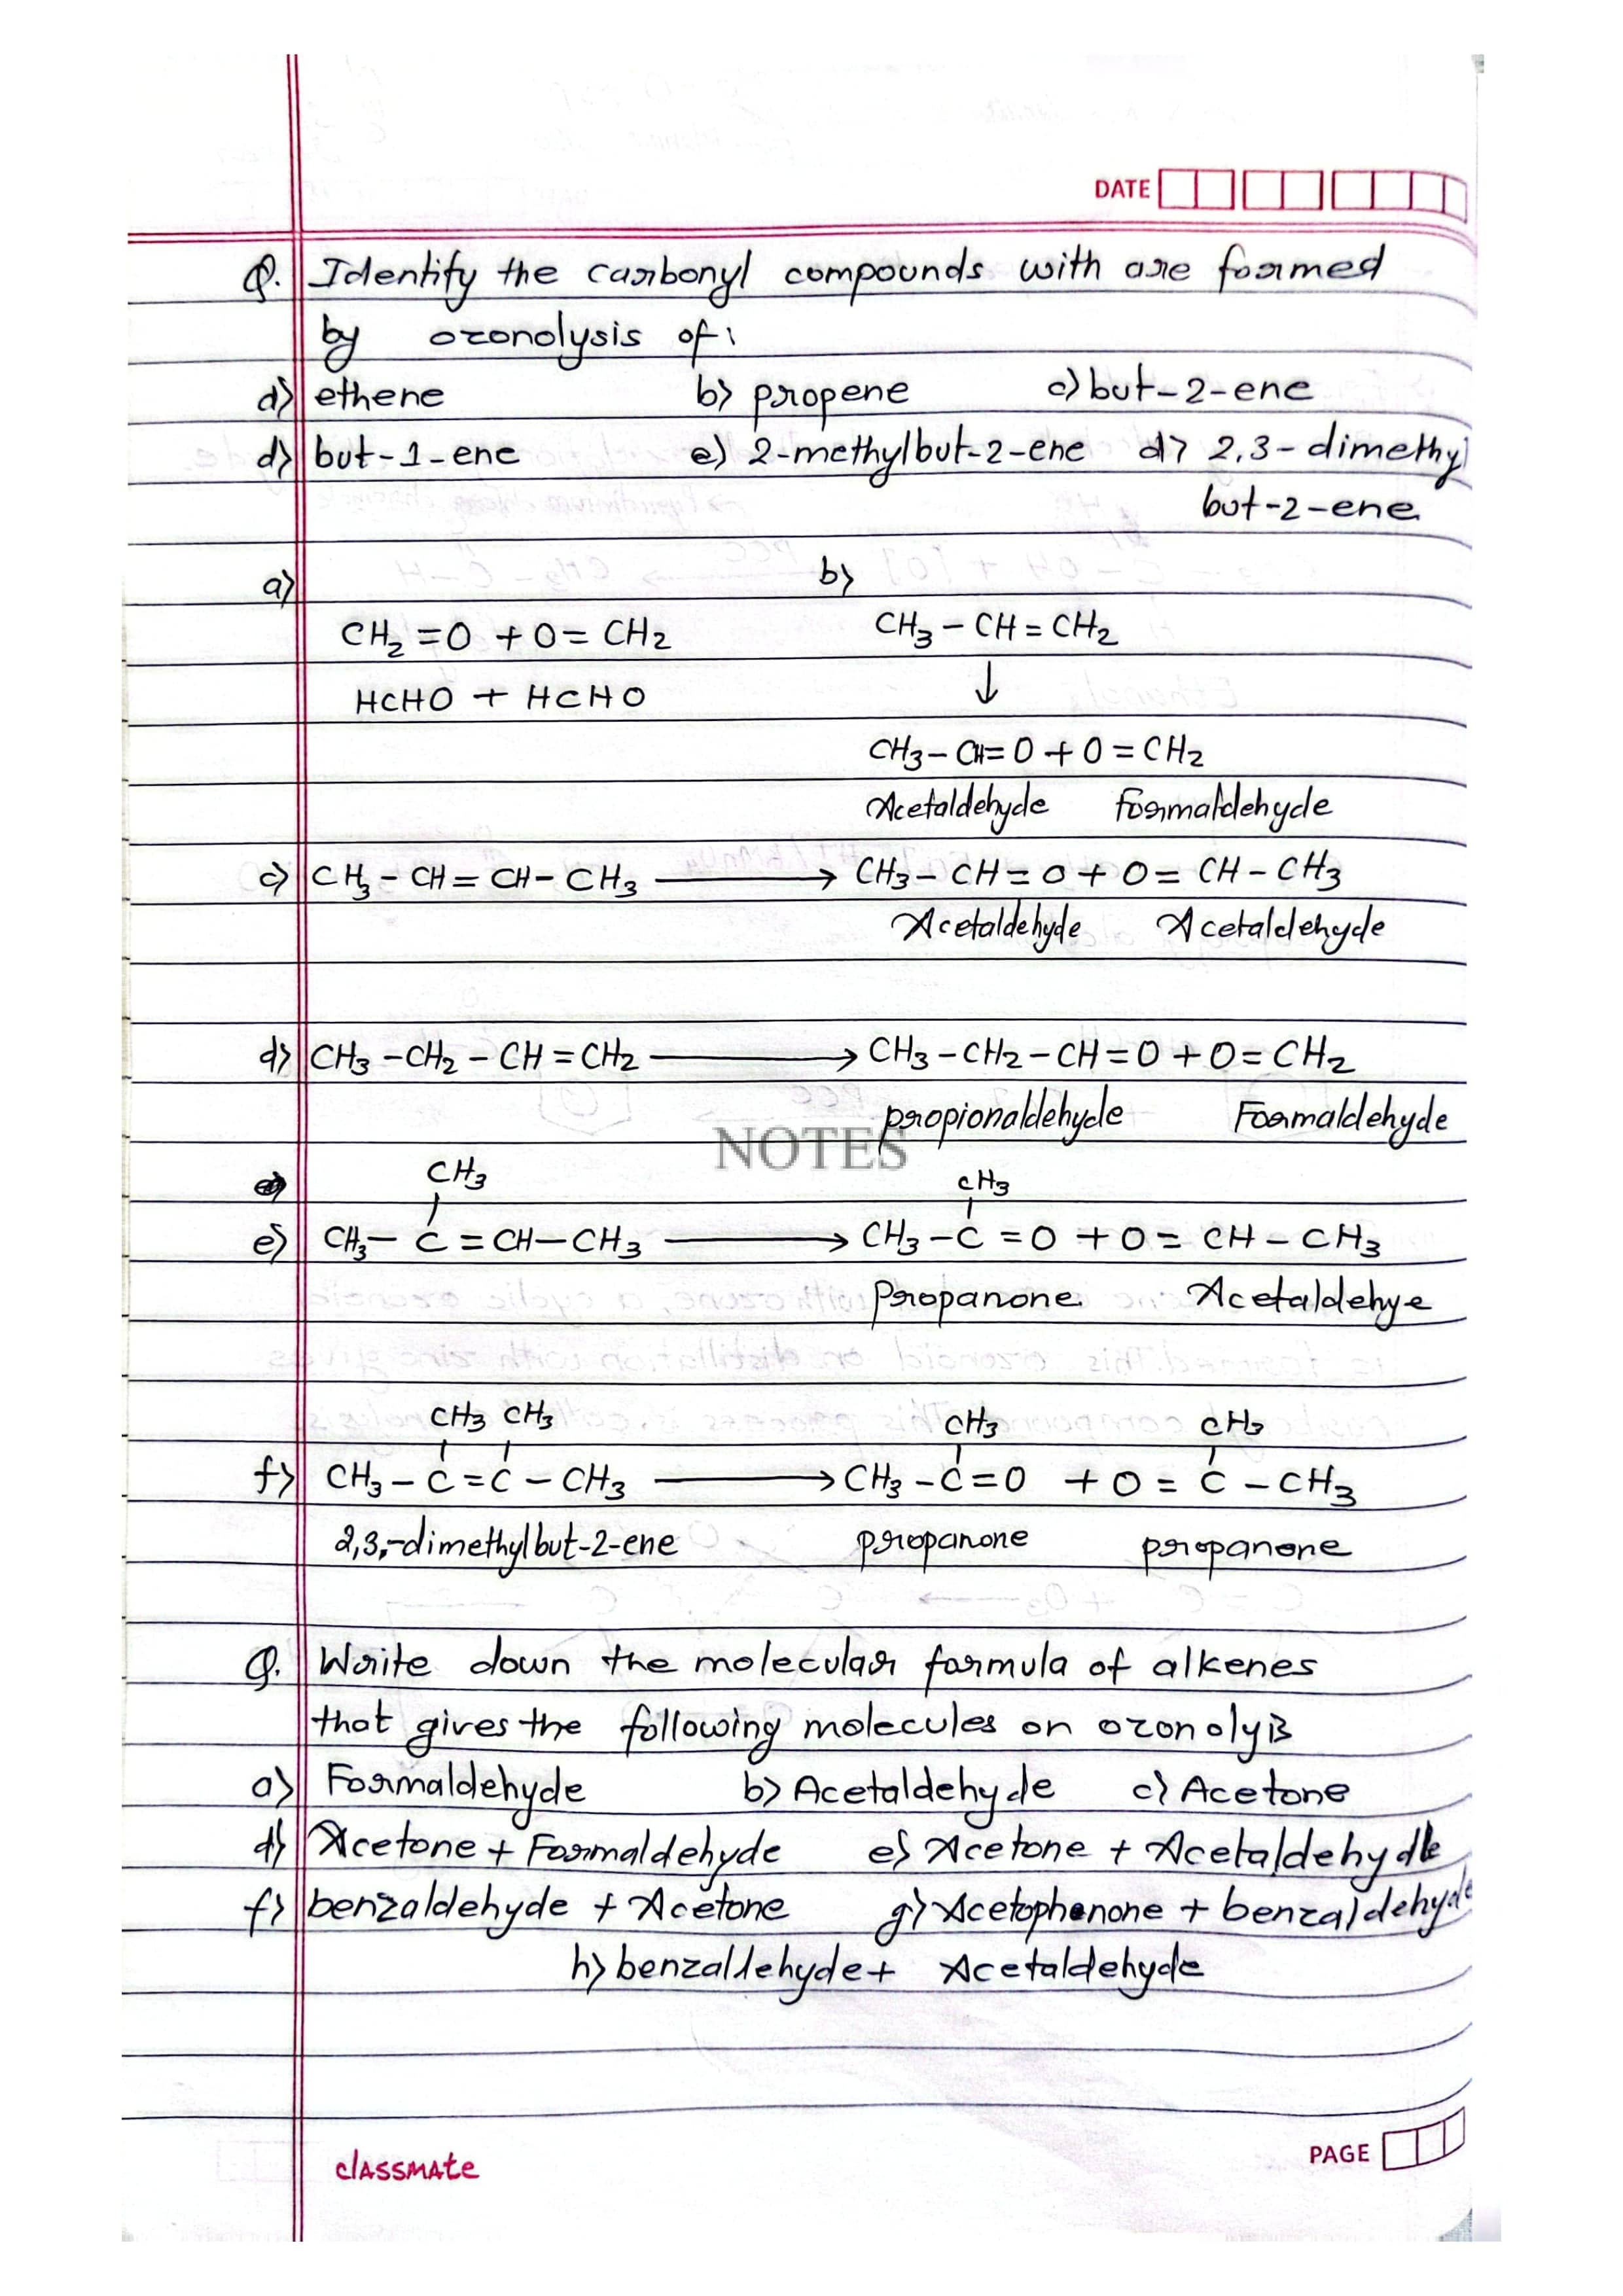 DATE
Q. Identify the carbonyl compounds with are formed
by ozonolysis of:
d) ethene b) propene c) but-2-ene
d) but-1-ene e) 2-methylbut-2-ene d) 2,3-dimethyl
but-2-ene
a) b)
CH2=O + O=CH2 CH3-CH=CH2
HCHO + HCHO ↓
CH3-CH=O + O=CH2
Acetaldehyde Formaldehyde
c) CH3-CH=CH-CH3 ⟶ CH3-CH=O + O=CH-CH3
Acetaldehyde Acetaldehyde
d) CH3-CH2-CH=CH2 ⟶ CH3-CH2-CH=O + O=CH2
propionaldehyde Formaldehyde
NOTES
CH3 CH3
e) CH3-C=CH-CH3 ⟶ CH3-C=O + O=CH-CH3
Propanone Acetaldehye
CH3 CH3 CH3 CH3
f) CH3-C=C-CH3 ⟶ CH3-C=O + O=C-CH3
2,3,-dimethylbut-2-ene propanone propanone
Q. Write down the molecular formula of alkenes
that gives the following molecules on ozonolyis
a) Formaldehyde b) Acetaldehyde c) Acetone
d) Acetone + Formaldehyde e) Acetone + Acetaldehyde
f) benzaldehyde + Acetone g) Acetophenone + benzaldehyde
h) benzaldehyde + Acetaldehyde
classmate
PAGE